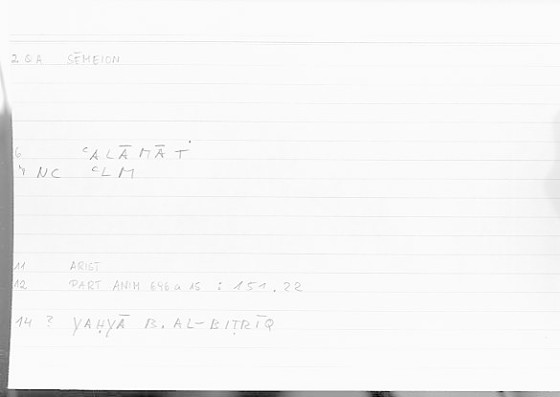 2 GA SĒMEION
6 ʿALĀMĀT
NC ʿLM
11 ARIST
12 PART ANIM 646 a 15 : 151.22
14 ? YAḤYĀ B. AL-BIṬRĪQ